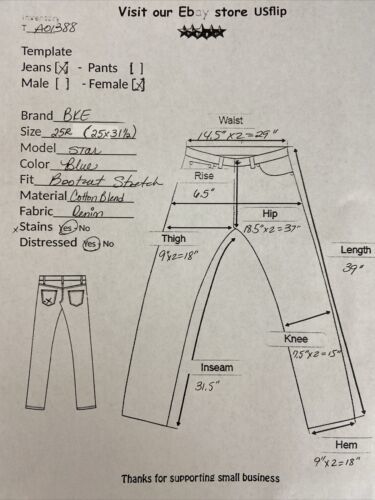 Visit our Ebay store USflip
Inventory
T A01388
Template
Jeans [X] - Pants [ ]
Male [ ] - Female [X]
Brand BKE
Size 25R (25x31½)
Model Star
Color Blue
Fit Bootcut Stretch
Material Cotton Blend
Fabric Denim
x Stains Yes - No
Distressed Yes - No
Waist
14.5" x 2 = 29"
Rise
6.5"
Hip
18.5" x 2 = 37"
Thigh
9" x 2 = 18"
Length
39"
Knee
7.5" x 2 = 15"
Inseam
31.5"
Hem
9" x 2 = 18"
Thanks for supporting small business